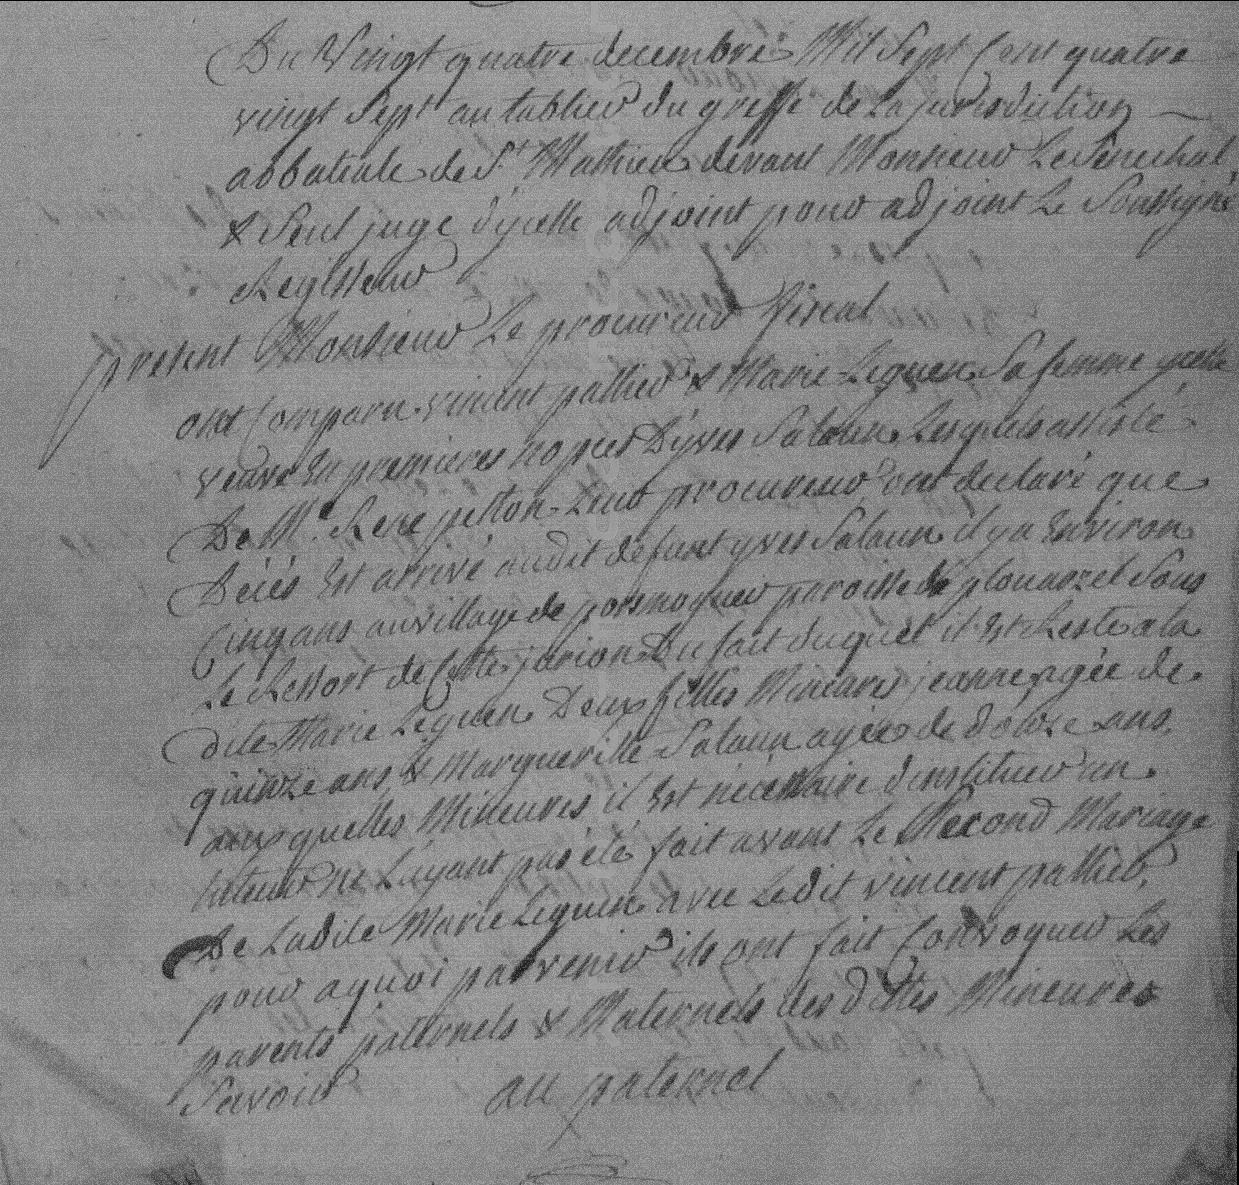 Du Vingt quatre decembre Mil Sept Cent quatre
vingt Sept au tablier du greffe de La jurisdiction
abbatiale de St Mathieu devant Monsieur Le Senechal
& Seul juge d'ycelle adjoint pour adjoint Le Soussigné
Registeur
present Monsieur Le procureur fiscal
ont Comparu vincent pallier & Marie Leguen Sa femme ycelle
veuve En premieres nopces D'yves Salaun Lesquels assisté
De Me Rene petton Leur procureur ont declaré que
Décés Est arrivé audit defunt yves Salaun il y a Environ
Cinq ans au village de porsmoguer paroisse de plouarzel Sous
Le Ressort de Cette jurion Du fait duquel il Est Resté a la
dite Marie Leguen Deux filles Mineures jeanne agée de
quinze ans & Margueritte Salaun agée de douze ans
aux quelles Mineures il Est nécéssaire d'instituer un
tuteur ne L'ayant pas été fait avant Le Second Mariage
De Ladite Marie Leguen avec Ledit vincent pallier,
pour a quoi parvenir ils ont fait Convoquer Les
parents paternels & Maternels des dittes Mineures
Savoir au paternel